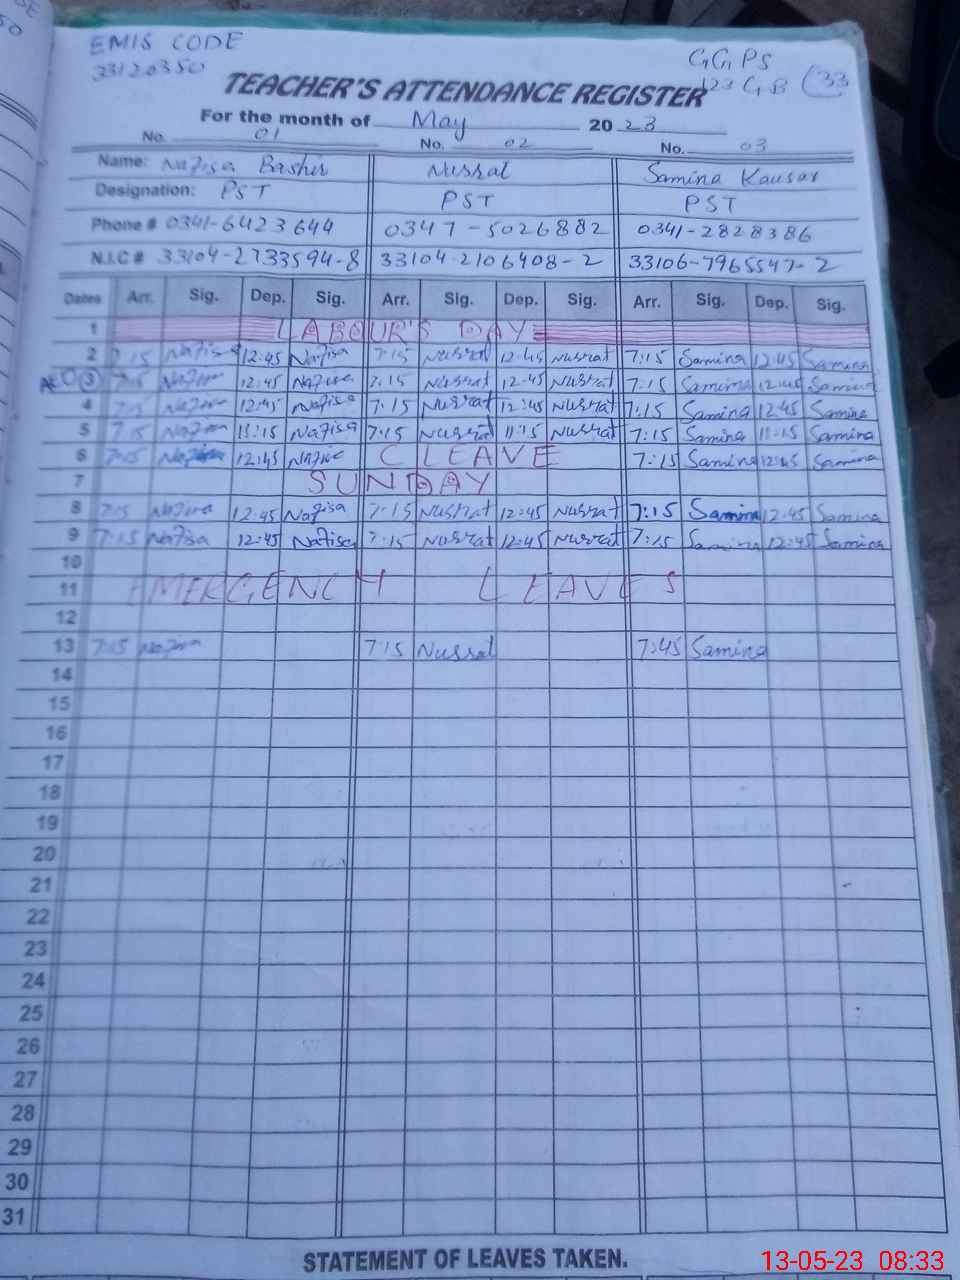 EMIS CODE
33120350
GGPS
123 GB (33
TEACHER'S ATTENDANCE REGISTER
For the month of May 2023
No. 01 No. 02 No. 03
Name: Nafisa Bashir Nusrat Samina Kausar
Designation: PST PST PST
Phone # 0341-6423644 0347-5026882 0341-2828386
N.I.C # 33104-2733594-8 33104-2106408-2 33106-7965547-2
Dates Arr. Sig. Dep. Sig. Arr. Sig. Dep. Sig. Arr. Sig. Dep. Sig.
1 LABOUR'S DAY
2 7:15 Nafisa 12:45 Nafisa 7:15 Nusrat 12:45 Nusrat 7:15 Samina 12:45 Samina
3 7:15 Nafisa 12:45 Nafisa 7:15 Nusrat 12:45 Nusrat 7:15 Samina 12:45 Samina
4 7:15 Nafisa 12:45 Nafisa 7:15 Nusrat 12:45 Nusrat 7:15 Samina 12:45 Samina
5 7:15 Nafisa 11:15 Nafisa 7:15 Nusrat 11:15 Nusrat 7:15 Samina 11:15 Samina
6 7:15 Nafisa 12:45 Nafisa C LEAVE 7:15 Samina 12:45 Samina
7 SUNDAY
8 7:15 Nafisa 12:45 Nafisa 7:15 Nusrat 12:45 Nusrat 7:15 Samina 12:45 Samina
9 7:15 Nafisa 12:45 Nafisa 7:15 Nusrat 12:45 Nusrat 7:15 Samina 12:45 Samina
10
11 EMERGENCY LEAVES
12
13 7:15 Nafisa 7:15 Nusrat 7:45 Samina
14
15
16
17
18
19
20
21
22
23
24
25
26
27
28
29
30
31
STATEMENT OF LEAVES TAKEN.
13-05-23 08:33